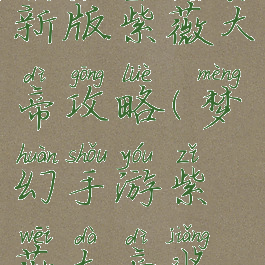 新版紫薇大
dì gōng lüè mèng
帝攻略(梦
huàn shǒu yóu zǐ
幻手游紫
wēi dà dì jiǎng
薇大帝奖